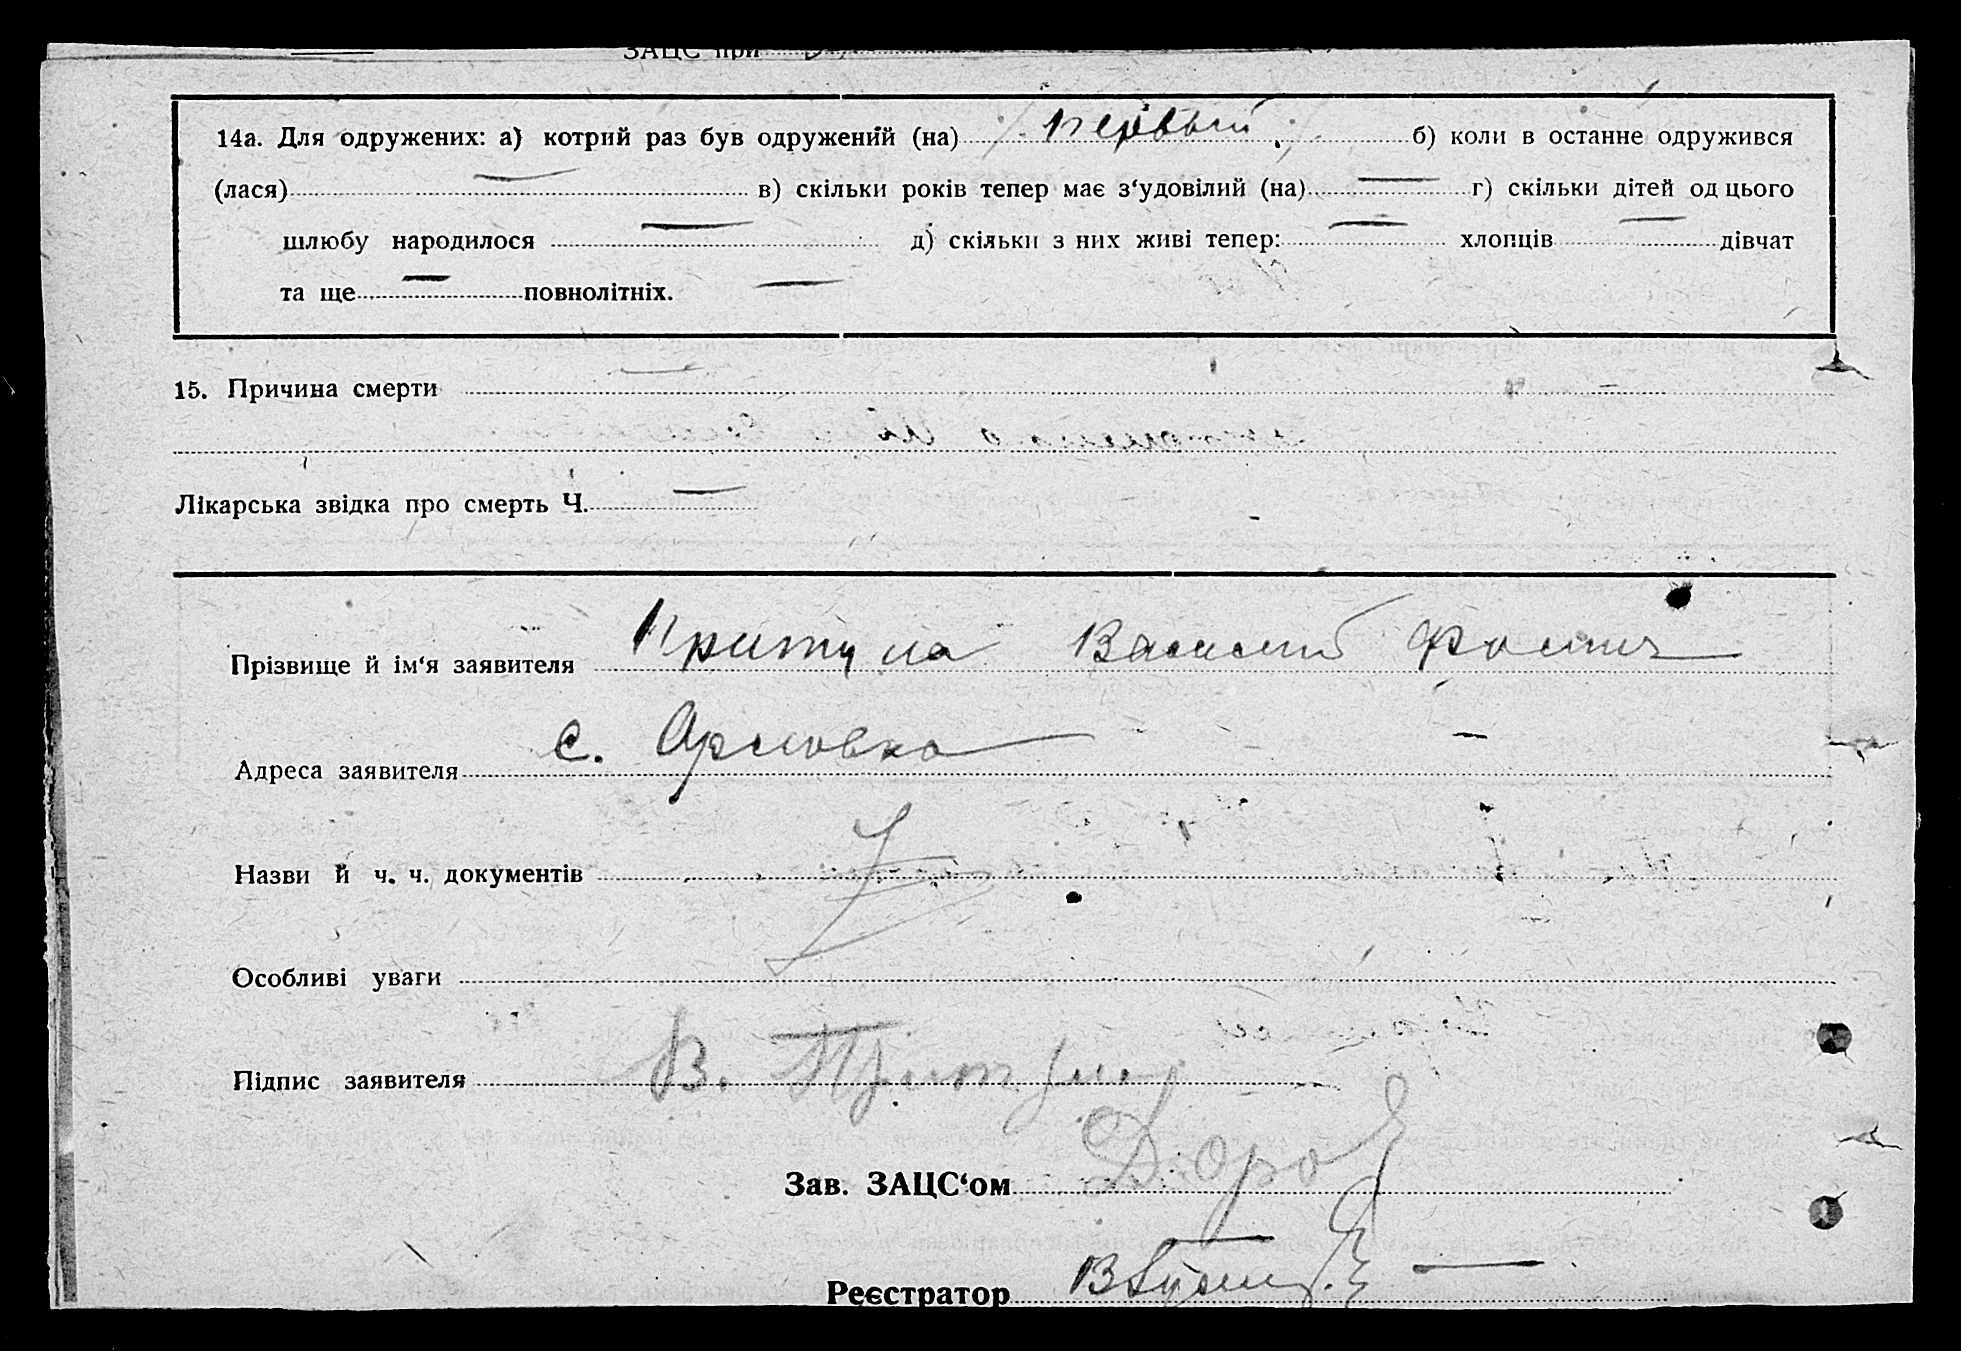 ЗАЦС при
14а. Для одружених: а) котрий раз був одружений (на) первый б) коли в останне одружився
(лася) — в) скільки років тепер має з‘удовілий (на) — г) скільки дітей од цього
шлюбу народилося — д) скільки з них живі тепер: — хлопців — дівчат
та ще — повнолітніх. —
15. Причина смерти —
Лікарська звідка про смерть Ч. —
Прізвище й ім‘я заявителя Притула Василий Фомич
Адреса заявителя с. Орловка
Назви й ч. ч. документів
Особливі уваги
Підпис заявителя В. Притула
Зав. ЗАЦС‘ом
Реєстратор